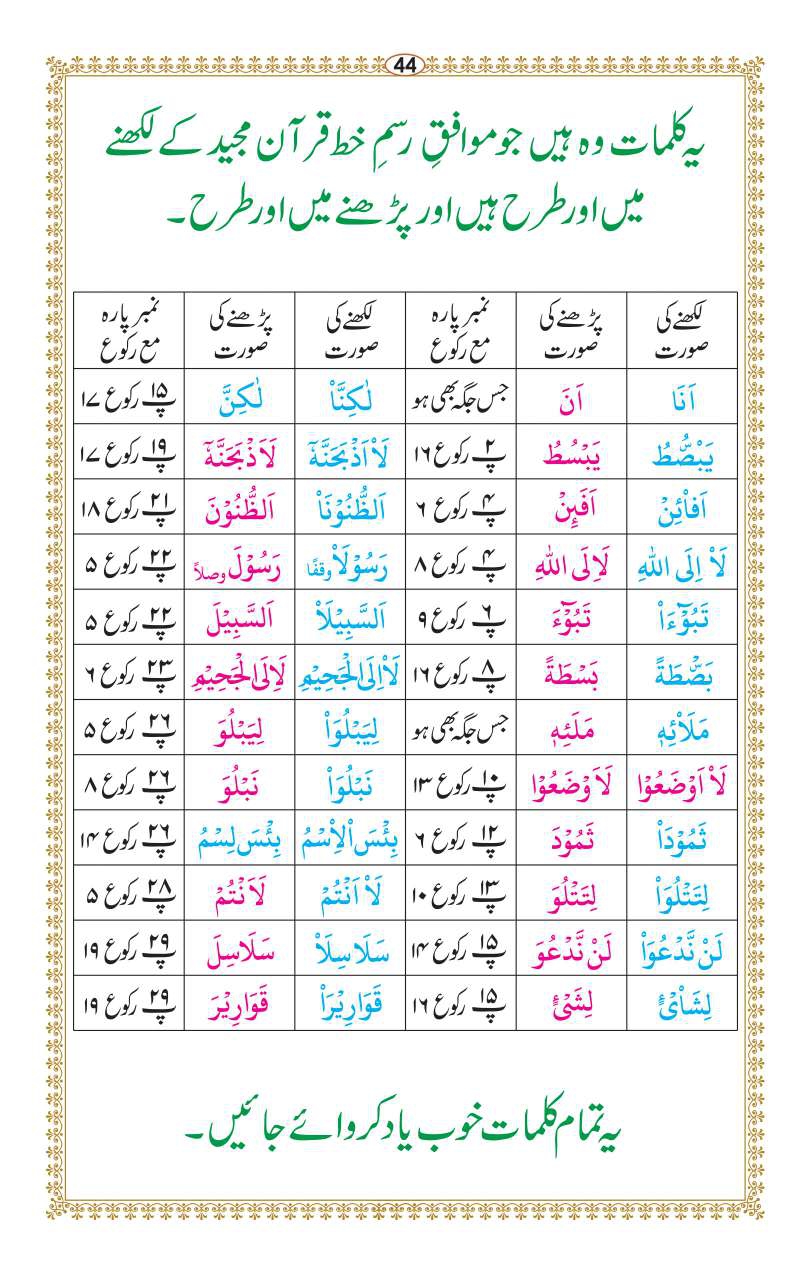 44
یہ کلمات وہ ہیں جو موافقِ رسمِ خط قرآن مجید کے لکھنے
میں اور طرح ہیں اور پڑھنے میں اور طرح۔
لکھنے کی صورت | پڑھنے کی صورت | نمبر پارہ مع رکوع | لکھنے کی صورت | پڑھنے کی صورت | نمبر پارہ مع رکوع
اَنَا | اَنَ | جس جگہ بھی ہو | لٰكِنَّا۠ | لٰكِنَّ | پ ۱۵ رکوع ۱۷
يَبْصُّطُ | يَبْسُطُ | پ ۲ رکوع ۱۶ | لَا۠اَذْبَحَنَّهٗۤ | لَاَذْبَحَنَّهٗۤ | پ ۱۹ رکوع ۱۷
اَفَا۠ئِنْ | اَفَئِنْ | پ ۴ رکوع ۶ | اَلظُّنُوْنَا۠ | اَلظُّنُوْنَ | پ ۲۱ رکوع ۱۸
لَا۠ اِلَى اللّٰهِ | لَاِلَى اللّٰهِ | پ ۴ رکوع ۸ | رَسُوْلَا۠ وقفًا | رَسُوْلَ وصلاً | پ ۲۲ رکوع ۵
تَبُوْٓءَا۠ | تَبُوْٓءَ | پ ۶ رکوع ۹ | اَلسَّبِيْلَا۠ | اَلسَّبِيْلَ | پ ۲۲ رکوع ۵
بَصْۜطَةً | بَسْطَةً | پ ۸ رکوع ۱۶ | لَا۠اِلَى الْجَحِيْمِ | لَاِلَى الْجَحِيْمِ | پ ۲۳ رکوع ۶
مَلَا۠ئِهٖ | مَلَئِهٖ | جس جگہ بھی ہو | لِيَبْلُوَا۠ | لِيَبْلُوَ | پ ۲۶ رکوع ۵
لَا۠ اَوْضَعُوْا | لَاَوْضَعُوْا | پ ۱۰ رکوع ۱۳ | نَبْلُوَا۠ | نَبْلُوَ | پ ۲۶ رکوع ۸
ثَمُوْدَا۠ | ثَمُوْدَ | پ ۱۲ رکوع ۶ | بِئْسَ الْاِسْمُ | بِئْسَ لِسْمُ | پ ۲۶ رکوع ۱۴
لِتَتْلُوَا۠ | لِتَتْلُوَ | پ ۱۳ رکوع ۱۰ | لَا۠ اَنْتُمْ | لَاَنْتُمْ | پ ۲۸ رکوع ۵
لَنْ نَّدْعُوَا۠ | لَنْ نَّدْعُوَ | پ ۱۵ رکوع ۱۴ | سَلَاسِلَا۠ | سَلَاسِلَ | پ ۲۹ رکوع ۱۹
لِشَا۠یْءٍ | لِشَیْءٍ | پ ۱۵ رکوع ۱۶ | قَوَارِيْرَا۠ | قَوَارِيْرَ | پ ۲۹ رکوع ۱۹
یہ تمام کلمات خوب یاد کروائے جائیں۔